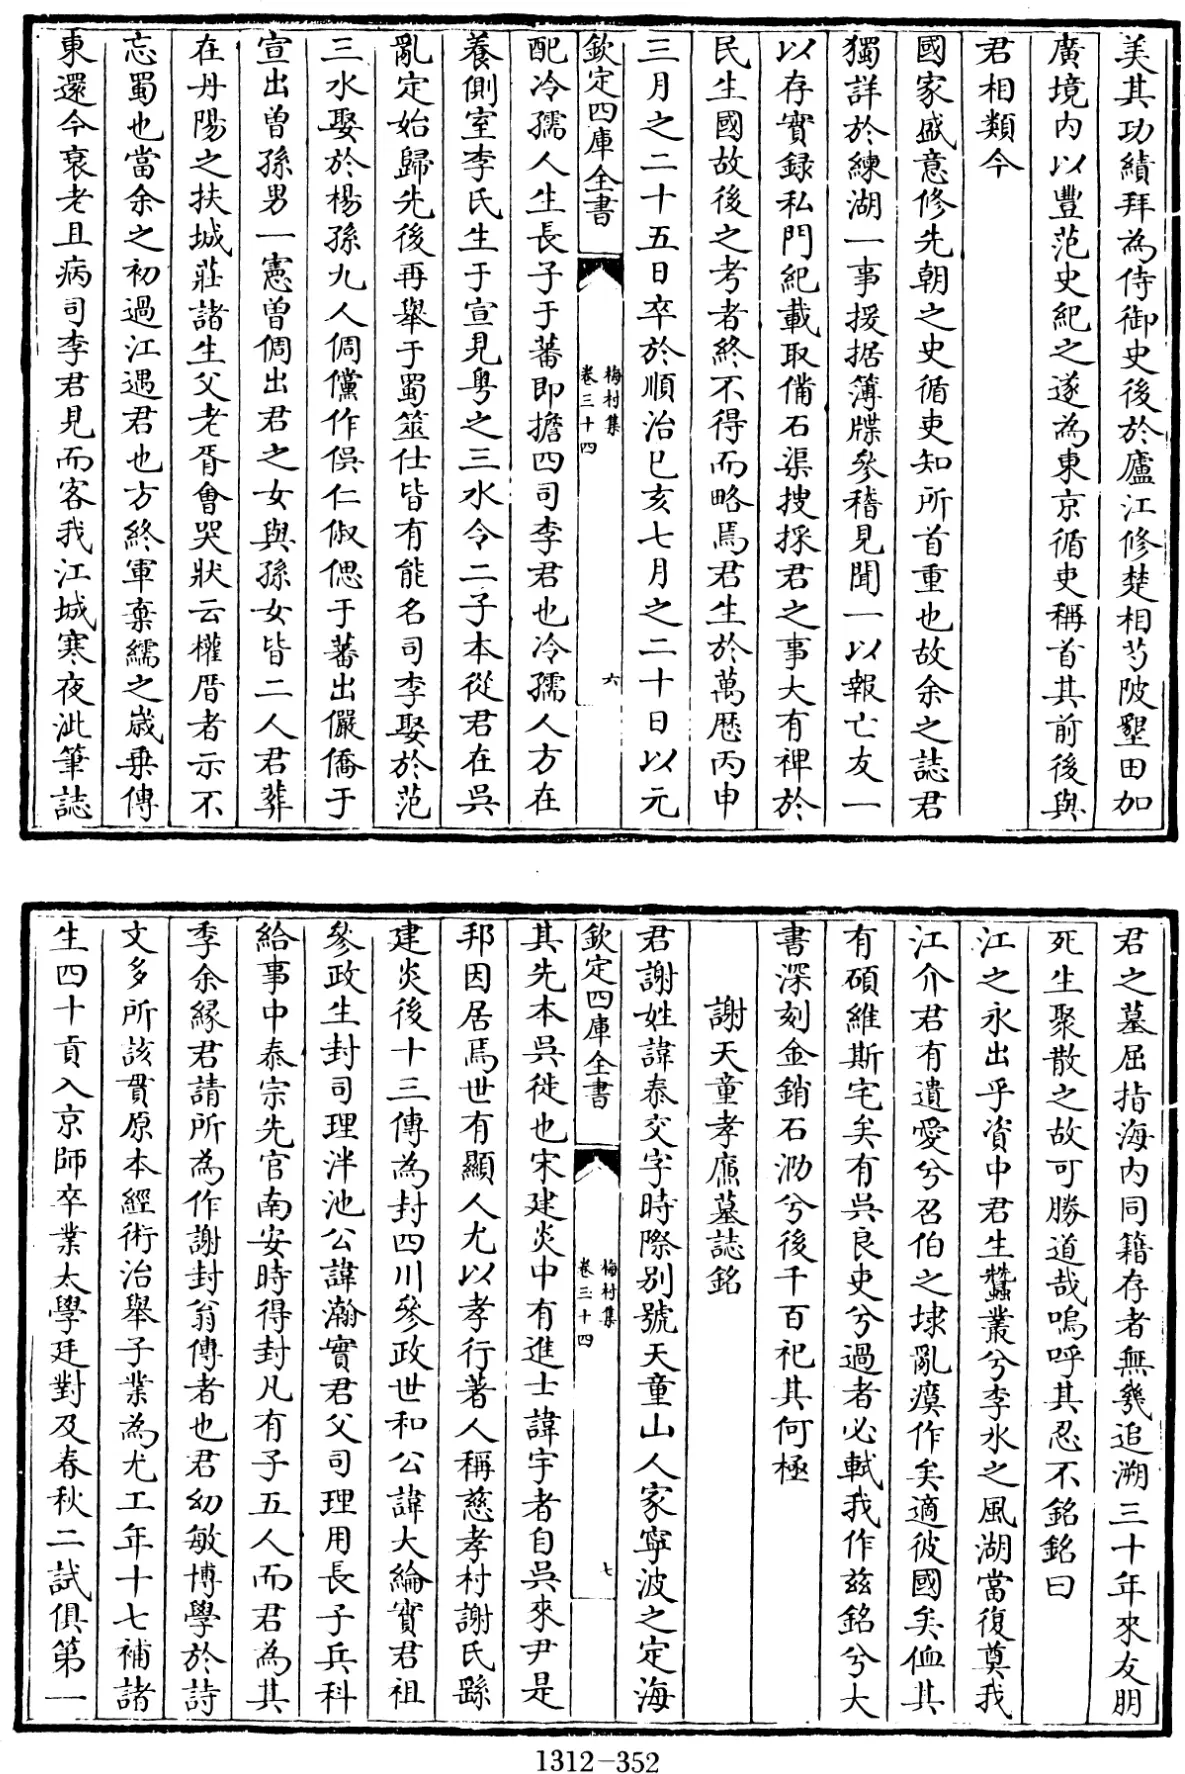 美其功績拜為侍御史後於廬江修楚相芍陂墾田加
廣境内以豐范史紀之遂為東京循吏稱首其前後與
君相類今
國家盛意修先朝之史循吏知所首重也故余之誌君
獨詳於練湖一事援据簿牒參稽見聞一以報亡友一
以存實録私門紀載取備石渠搜採君之事大有裨於
民生國故後之考者終不得而略焉君生於萬厯丙申
三月之二十五日卒於順治已亥七月之二十日以元
欽定四庫全書
梅村集
卷三十四
六
配冷孺人生長子于蕃即擔四司李君也冷孺人方在
養側室李氏生于宣見粤之三水令二子本從君在吳
亂定始歸先後再舉于蜀筮仕皆有能名司李娶於范
三水娶於楊孫九人侗儻作俁仁俶偲于蕃出儼僑于
宣出曾孫男一憲曾侗出君之女與孫女皆二人君葬
在丹陽之扶城莊諸生父老胥會哭狀云權厝者示不
忘蜀也當余之初過江遇君也方終軍棄繻之歳乗傳
東還今衰老且病司李君見而客我江城寒夜泚筆誌
君之墓屈指海内同籍存者無幾追溯三十年來友朋
死生聚散之故可勝道哉嗚呼其忍不銘銘曰
江之永出乎資中君生蠶叢兮李水之風湖當復奠我
江介君有遺愛兮召伯之埭亂瘼作矣適彼國矣侐其
有碩維斯宅矣有吳良吏兮過者必軾我作兹銘兮大
書深刻金銷石泐兮後千百祀其何極
謝天童孝廉墓誌銘
君謝姓諱泰交字時際别號天童山人家寧波之定海
欽定四庫全書
梅村集
卷三十四
七
其先本吳徙也宋建炎中有進士諱宇者自吳來尹是
邦因居焉世有顯人尤以孝行著人稱慈孝村謝氏繇
建炎後十三傳為封四川參政世和公諱大綸實君祖
參政生封司理泮池公諱瀚實君父司理用長子兵科
給事中泰宗先官南安時得封凡有子五人而君為其
季余緣君請所為作謝封翁傳者也君幼敏博學於詩
文多所該貫原本經術治舉子業為尤工年十七補諸
生四十貢入京師卒業太學廷對及春秋二試俱第一
1312-352